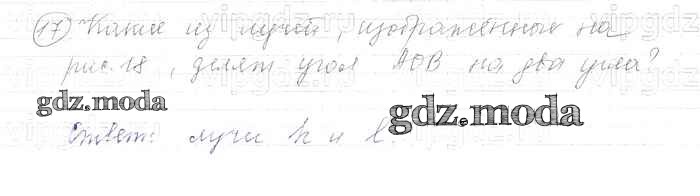 17 Какие из лучей, изображённых на
рис. 18, делят угол AOB на два угла?
gdz.moda
gdz.moda
Ответ: лучи h и l.